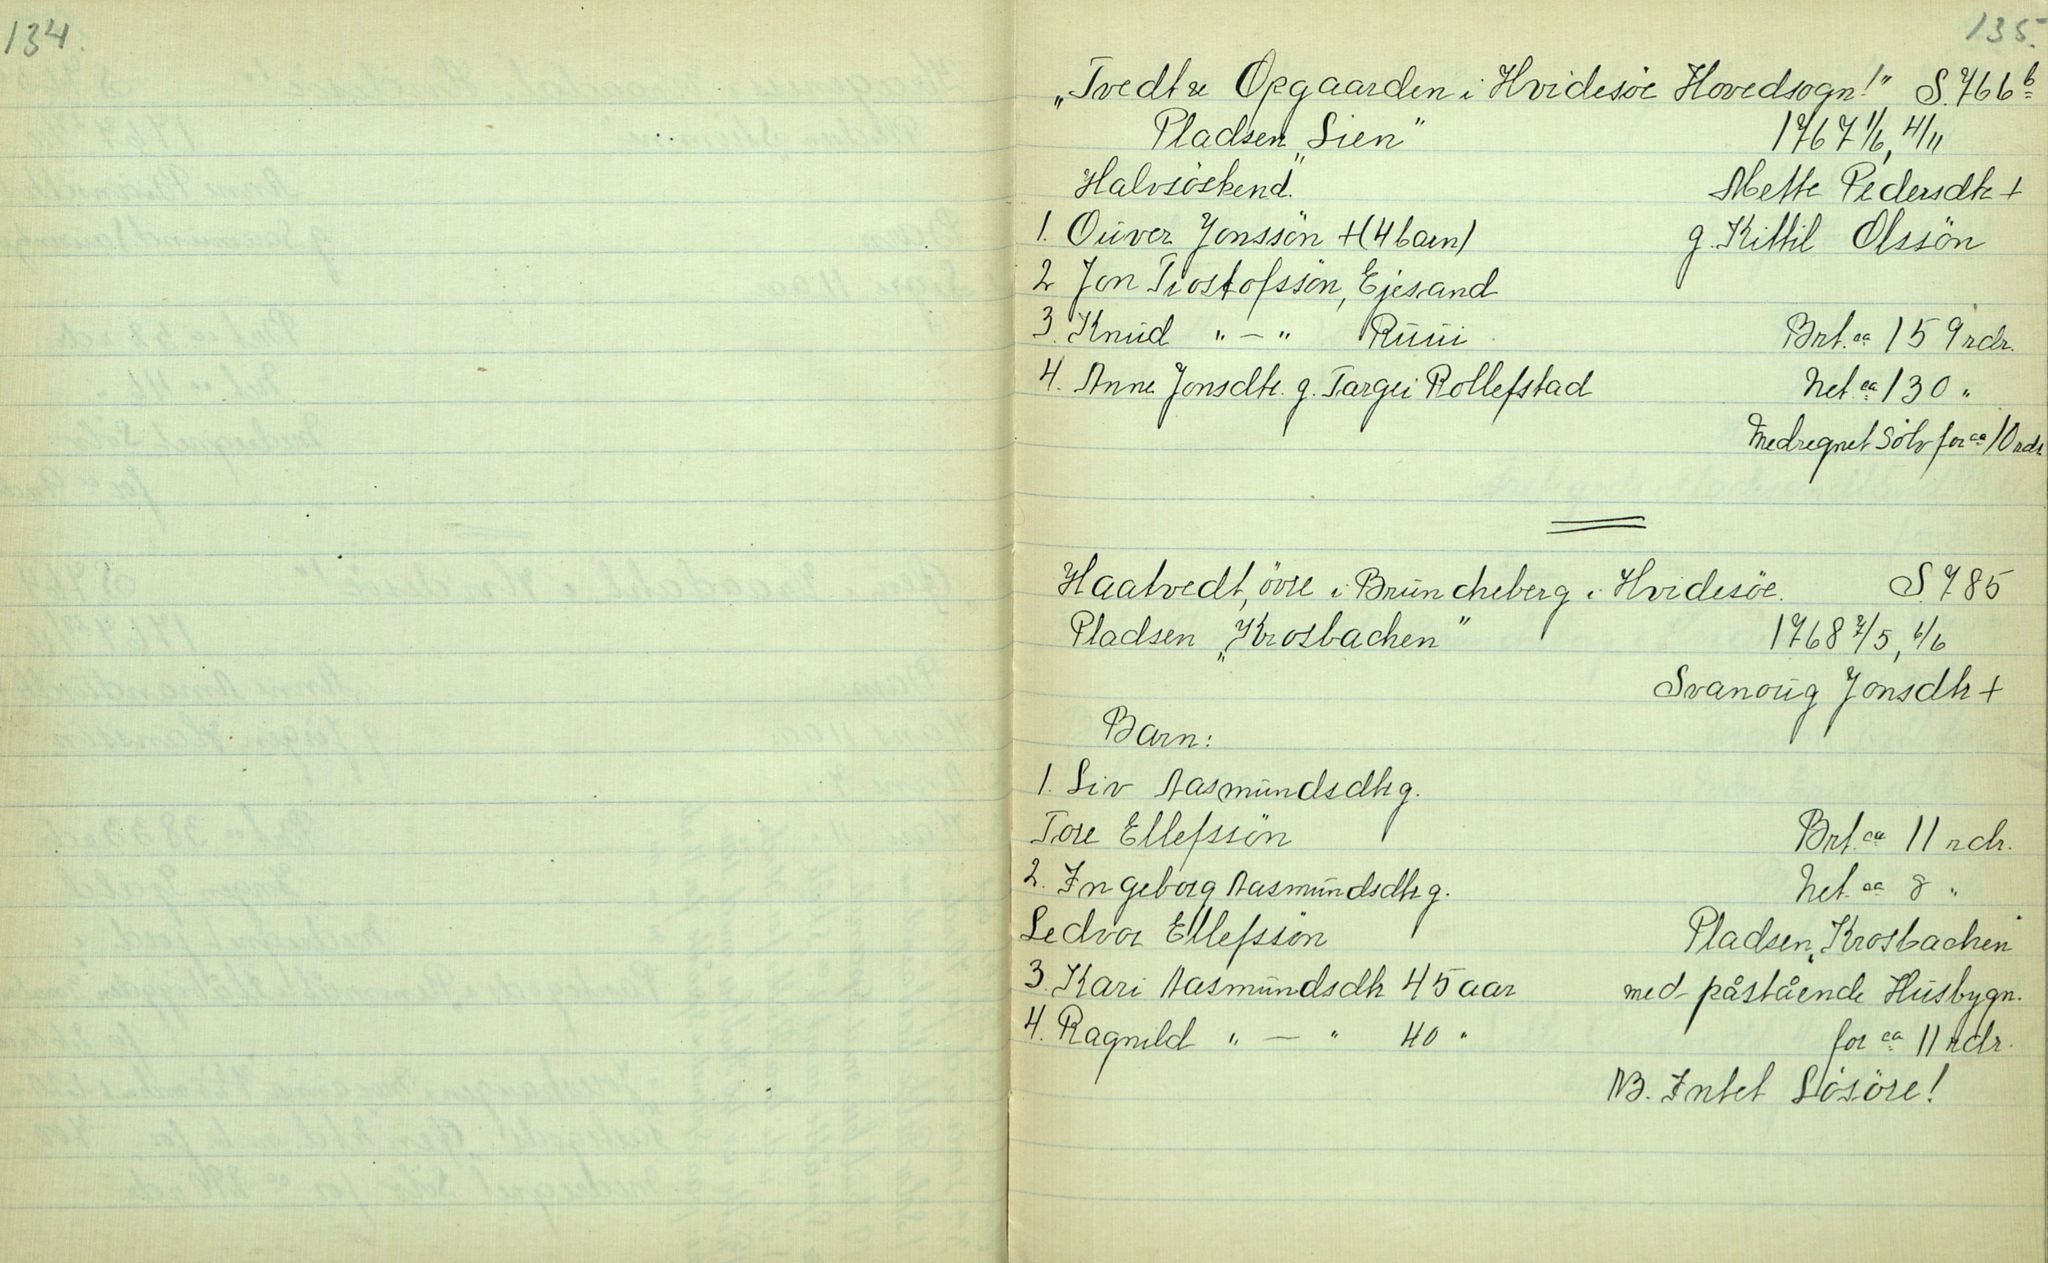 134.
135.
„Tvedt re Opgaarden i Hvidesöe Hovedsogn!" S. 766 b
Pladsen „Lien" 1767 1/6, 4/11
Halvsöskend. Mette Pedersdtr +
1. Ouver Jonssön + (4 barn) g. Kittil Olssön
2 Jon Tiostofssön, Ejesand
3. Knud " — " Ruui Brt. ca 159 rdr.
4. Anne Jonsdtr. g. Targei Rollefstad Net. ca 130 "
Medregnet Sölv for ca 10 rdr
Haatvedt, övre i Bruncheberg i Hvidesöe. S. 785
Pladsen „Krosbachen" 1768 7/5, 6/6
Svanoug Jonsdtr +
Barn:
1. Liv Aasmundsdtr g.
Tore Ellefssön Brt. ca 11 rdr.
2. Ingeborg Aasmundsdtr g. Net. ca 8 "
Ledvor Ellefssön Pladsen „Krosbachen
3. Kari Aasmundsdtr 45 aar med påstående Husbygn.
4. Ragnild " — " 40 " for ca 11 rdr.
NB. Intet Lösöre!